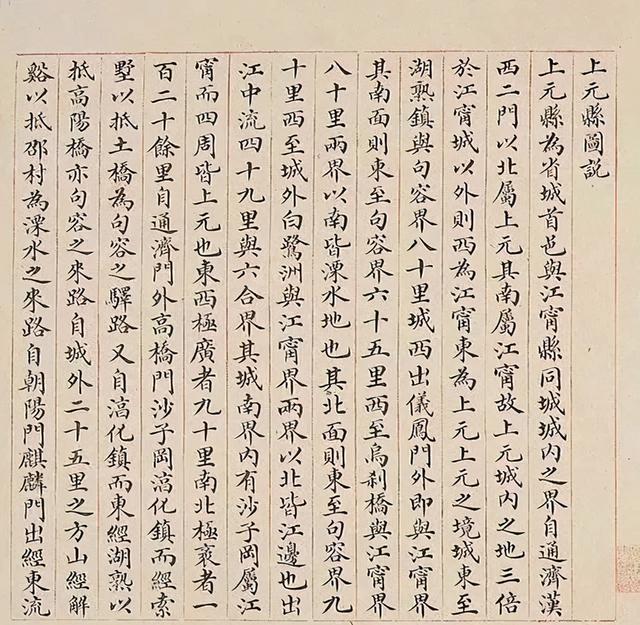 上元縣圖説
上元縣為省城首邑與江甯縣同城城内之界自通濟漢
西二門以北屬上元其南屬江甯故上元城内之地三倍
於江甯城以外則西為江甯東為上元上元之境城東至
湖熟鎮與句容界八十里城西出儀鳳門外即與江甯界
其南面則東至句容界六十五里西至烏刹橋與江甯界
八十里兩界以南皆溧水地也其北面則東至句容界九
十里西至城外白鷺洲與江甯界兩界以北皆江邊也出
江中流四十九里與六合界其城南界内有沙子岡屬江
甯而四周皆上元也東西極廣者九十里南北極袤者一
百二十餘里自通濟門外高橋門沙子岡湻化鎮而經索
墅以抵土橋為句容之驛路又自湻化鎮而東經湖熟以
抵高陽橋亦句容之來路自城外二十五里之方山經解
谿以抵邵村為溧水之來路自朝陽門麒麟門出經東流